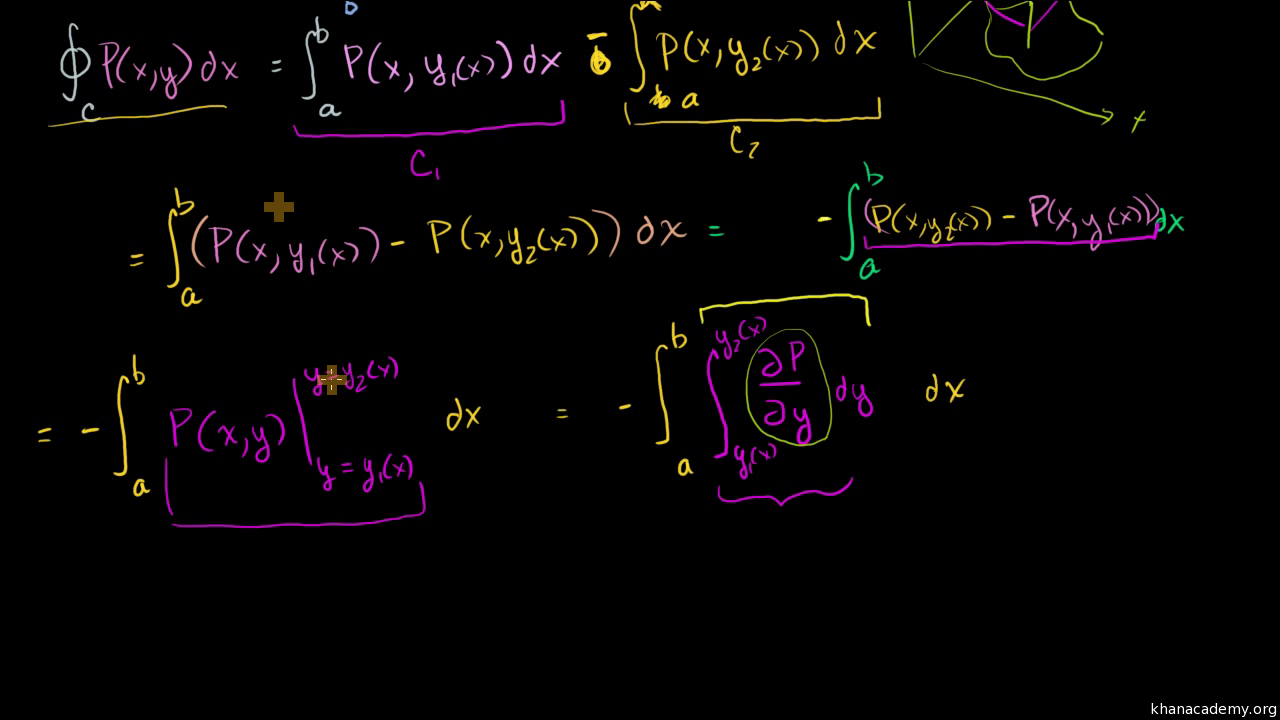 ∮_C P(x,y) dx = ∫_a^b P(x, y₁(x)) dx - ∫_a P(x, y₂(x)) dx
C₁ C₂ x
= ∫_a^b (P(x, y₁(x)) - P(x, y₂(x))) dx = - ∫_a^b (P(x, y₂(x)) - P(x, y₁(x))) dx
= - ∫_a^b P(x,y) |_{y = y₁(x)}^{y = y₂(x)} dx = - ∫_a^b ∫_{y₁(x)}^{y₂(x)} ∂P/∂y dy dx
khanacademy.org